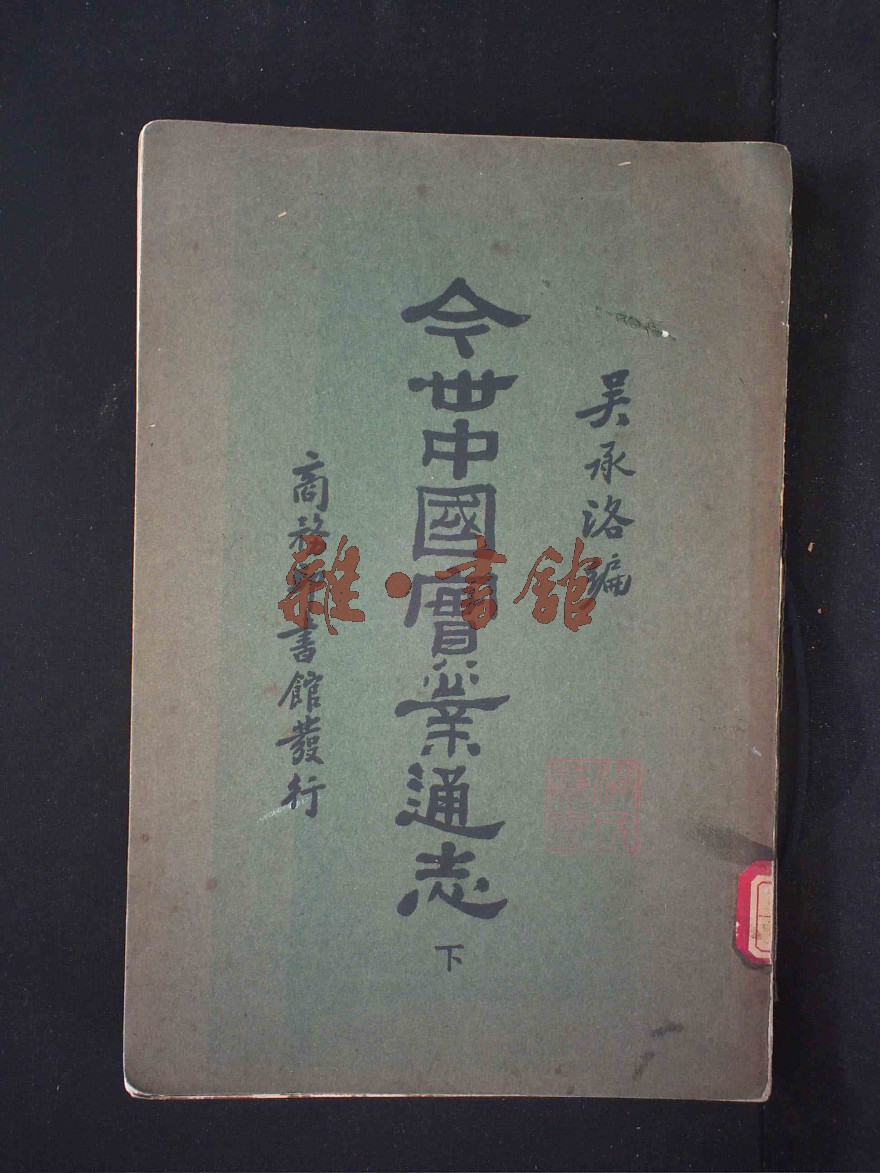 吴承洛编
今世中國實業通志
下
商務印書館發行
雜·書館